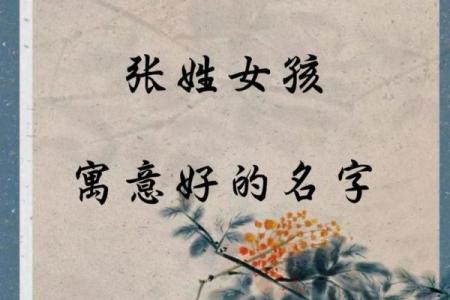 张姓女孩
寓意好的名字